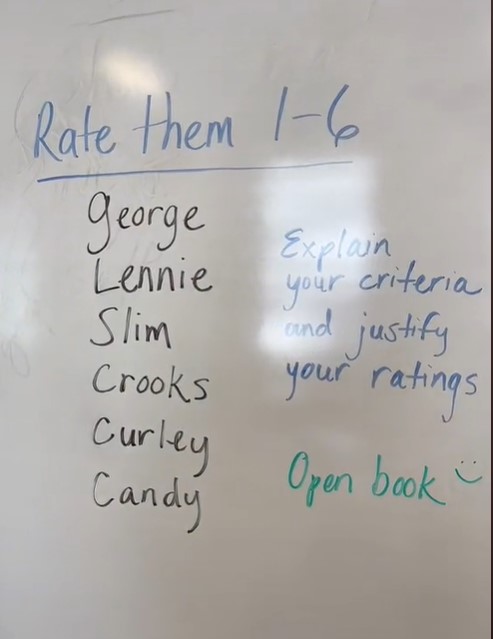 Rate them 1-6
George
Lennie
Slim
Crooks
Curley
Candy
Explain
your criteria
and justify
your ratings
Open book :)